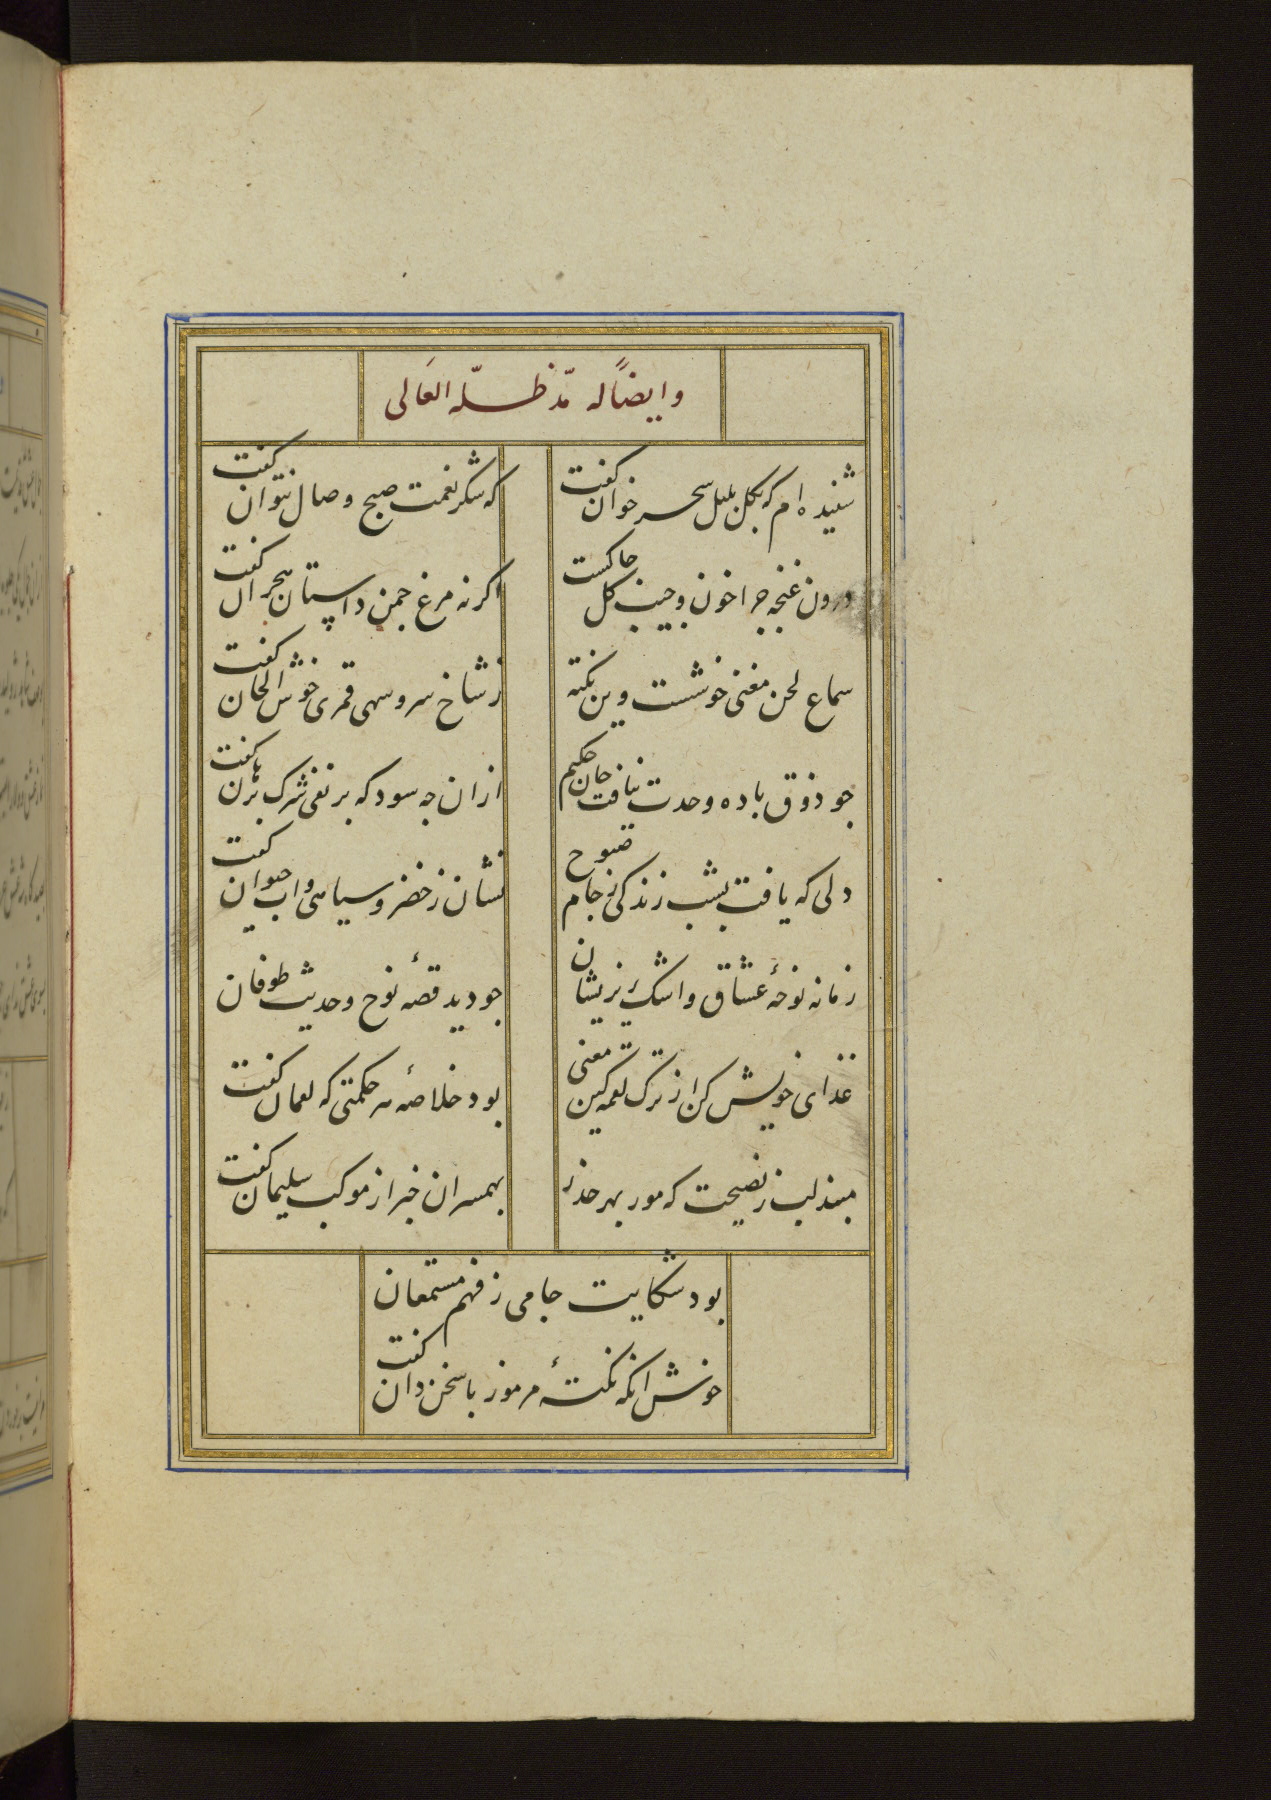 وایضاً له مدّ ظلّه العالی
شنیده ام که بکل بلبل سحر خوان کفت
که شکر نعمت صبح وصال نتوان کفت
درون غنجه جرا خون و جیب کل جاکست
اکر نه مرغ جمن داستان هجران کفت
سماع لحن مغنی خوشست وین نکته
ز شاخ سرو سهی قمری خوش الحان کفت
جو ذوق باده وحدت نیافت جان حکیم
ازان جه سود که بر نفی شرک برهان کفت
دلی که یافت بشب زندکی ز جام صبوح
نشان ز خضر و سیاهی و اب حیوان کفت
زمانه نوحهٔ عشاق و اشک ریزیشان
جو دید قصهٔ نوح و حدیث طوفان
غذای خویش کن از ترک لقمه کین معنی
بود خلاصهٔ هر حکمتی که لقمان کفت
مبند لب ز نصیحت که مور بهر حذر
بهمسران خبر از موکب سلیمان کفت
بود شکایت جامی ز فهم مستمعان
خوش انکه نکتهٔ مرموز با سخن دان کفت